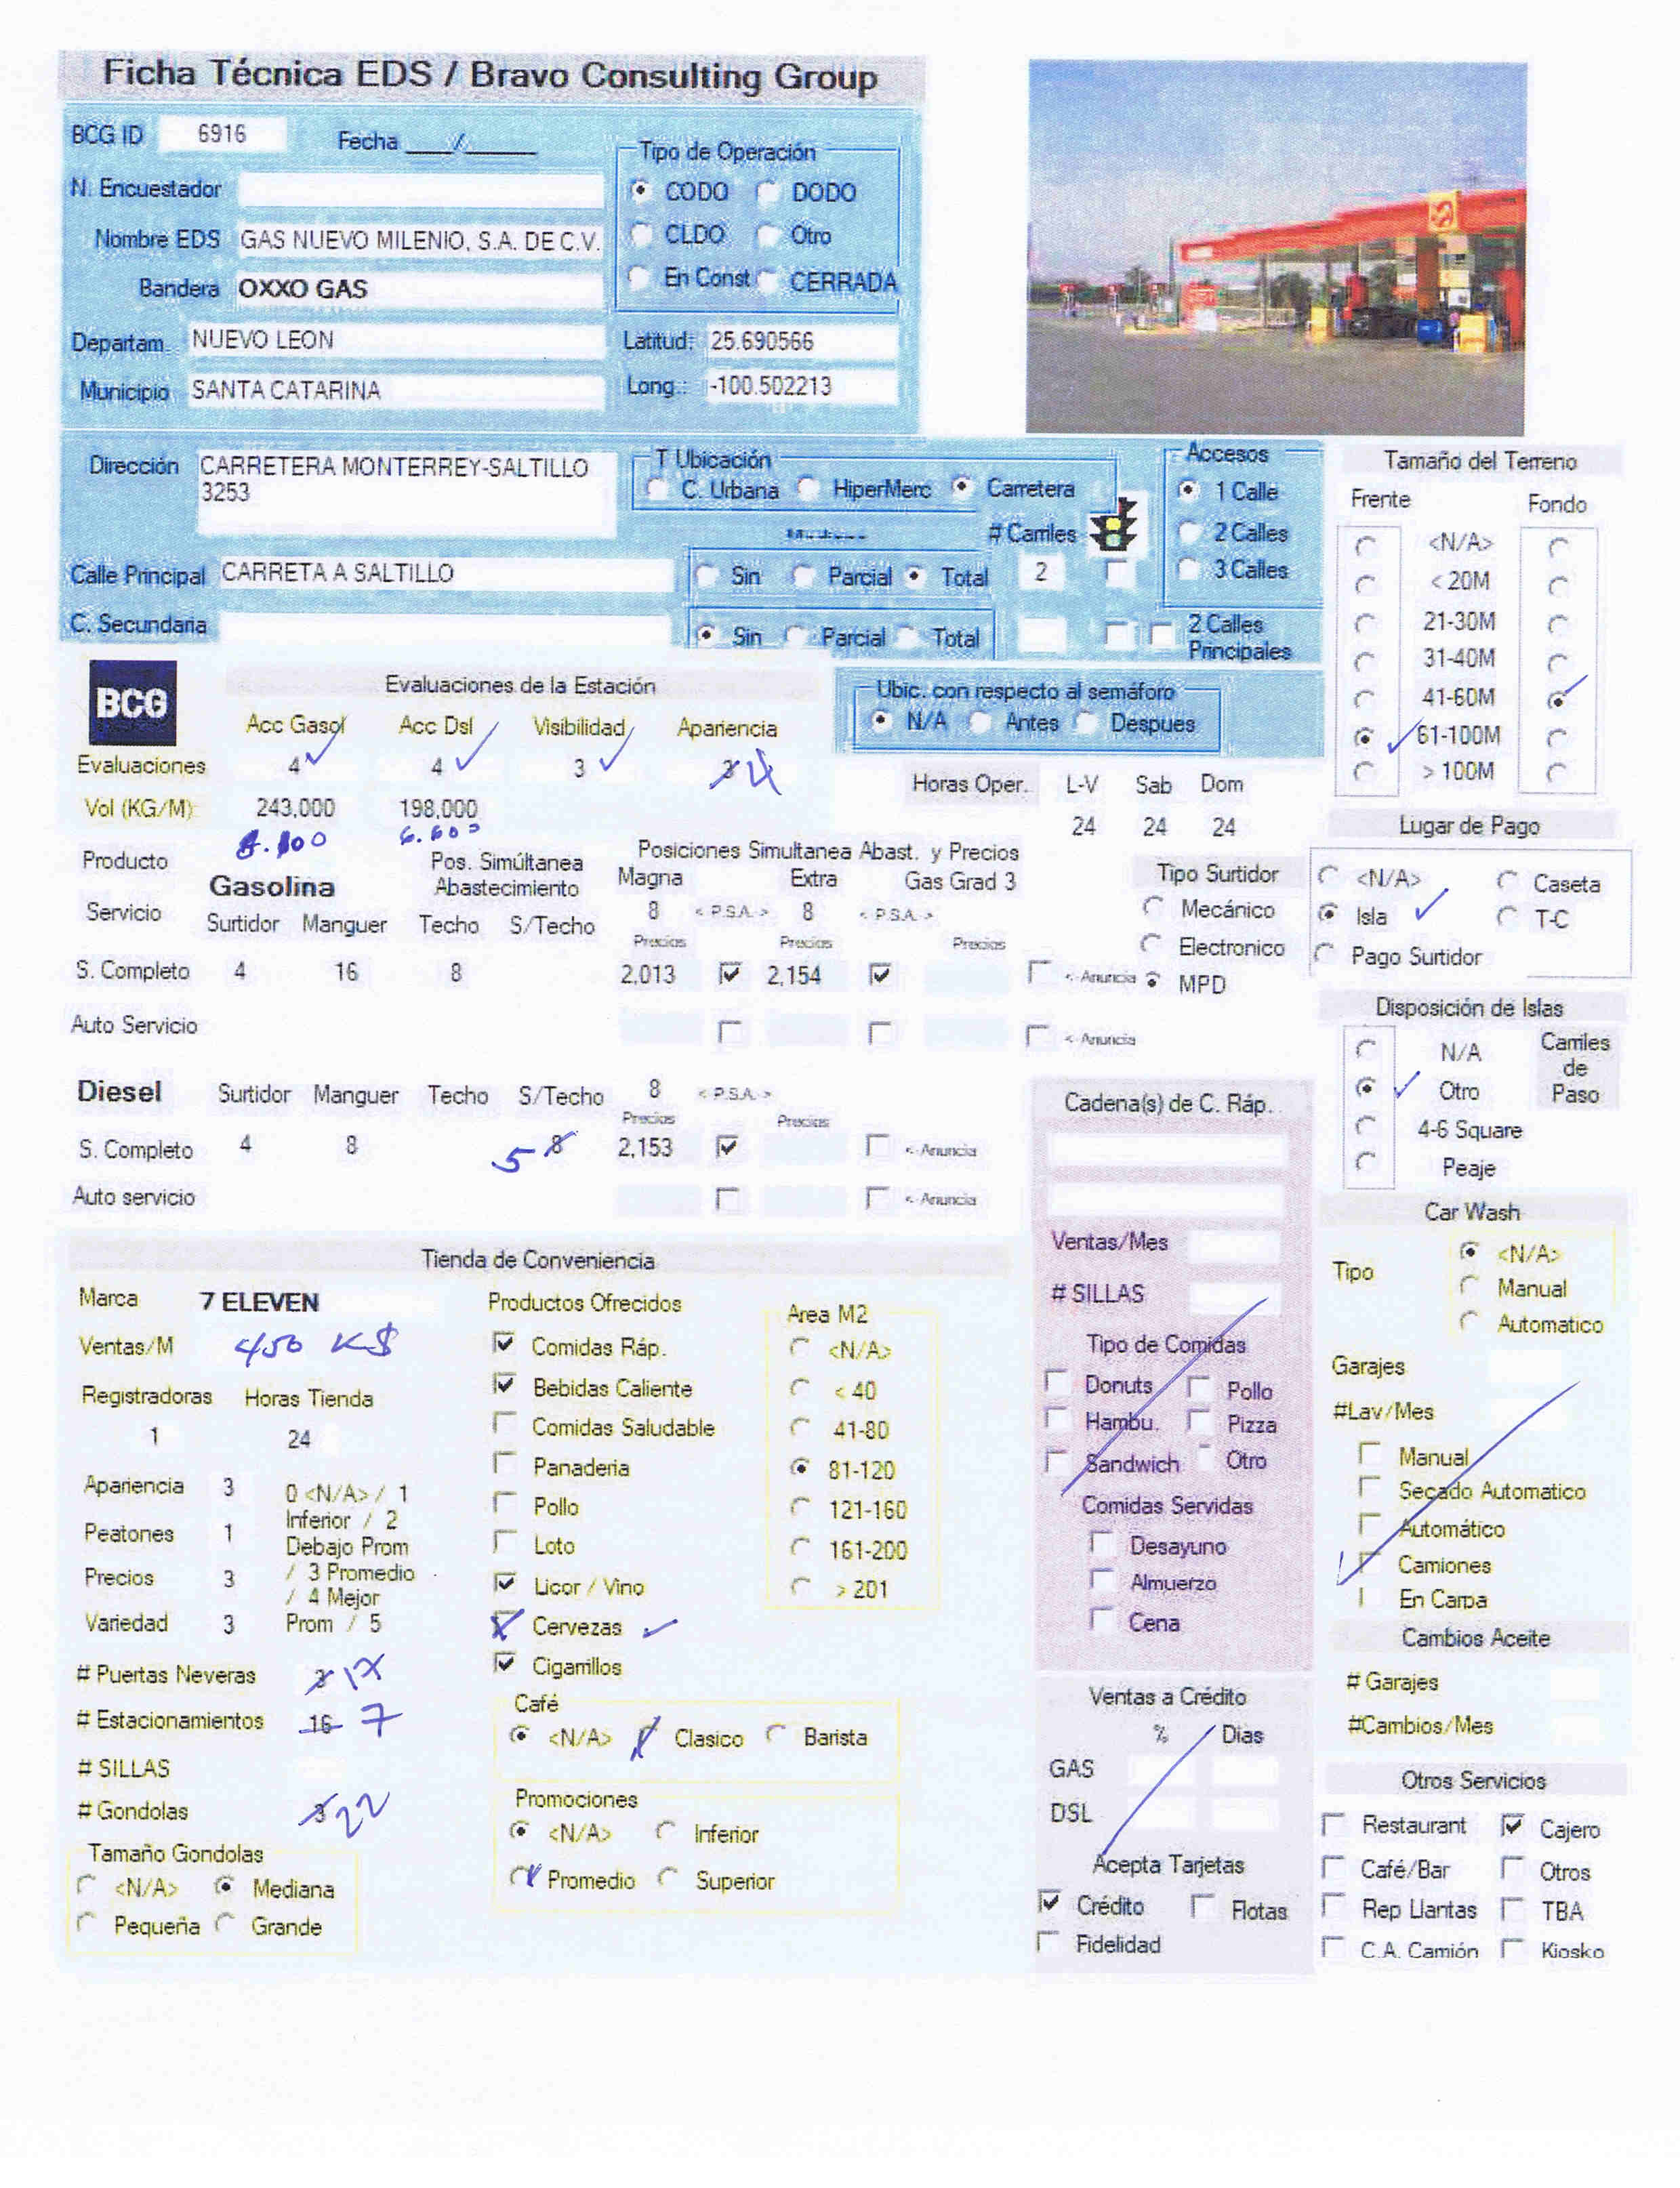 Ficha Técnica EDS / Bravo Consulting Group
BCG ID 6916 Fecha ___/______
N. Encuestador
Nombre EDS GAS NUEVO MILENIO, S.A. DE C.V.
Bandera OXXO GAS
Departam. NUEVO LEON
Municipio SANTA CATARINA
Tipo de Operación
CODO DODO
CLDO Otro
En Const CERRADA
Latitud: 25.690566
Long.: -100.502213
Dirección CARRETERA MONTERREY-SALTILLO
3253
T Ubicación
C. Urbana HiperMerc Carretera
# Carriles
Calle Principal CARRETA A SALTILLO
Sin Parcial Total 2
C. Secundaria
Sin Parcial Total
Accesos
1 Calle
2 Calles
3 Calles
2 Calles
Principales
Tamaño del Terreno
Frente Fondo
<N/A>
< 20M
21-30M
31-40M
41-60M
61-100M
> 100M
BCG
Evaluaciones de la Estación
Acc Gasol Acc Dsl Visibilidad Apariencia
Evaluaciones 4 4 3 3 4
Vol (KG/M) 243,000 198,000
6.600
Ubic. con respecto al semáforo
N/A Antes Despues
Horas Oper. L-V Sab Dom
24 24 24
Producto
Gasolina
Pos. Simúltanea
Abastecimiento
Posiciones Simultanea Abast. y Precios
Magna Extra Gas Grad 3
8 < P.S.A. > 8 < P.S.A. >
Servicio Surtidor Manguer Techo S/Techo
Precios Precios Precios
S. Completo 4 16 8 2,013 2,154 <- Anuncia
Auto Servicio <- Anuncia
Tipo Surtidor
Mecánico
Electronico
MPD
Lugar de Pago
<N/A> Caseta
Isla T-C
Pago Surtidor
Diesel Surtidor Manguer Techo S/Techo 8 < P.S.A. >
Precios Precios
S. Completo 4 8 5 8 2,153 <- Anuncia
Auto servicio <- Anuncia
Disposición de Islas
N/A
Otro
4-6 Square
Peaje
Carriles
de
Paso
Tienda de Conveniencia
Marca 7 ELEVEN
Ventas/M 450 K$
Registradoras Horas Tienda
1 24
Apariencia 3
Peatones 1
Precios 3
Variedad 3
0 <N/A> / 1
Inferior / 2
Debajo Prom
/ 3 Promedio
/ 4 Mejor
Prom / 5
# Puertas Neveras 17
# Estacionamientos 16 7
# SILLAS
# Gondolas 3 22
Tamaño Gondolas
<N/A> Mediana
Pequeña Grande
Productos Ofrecidos
Comidas Ráp.
Bebidas Caliente
Comidas Saludable
Panaderia
Pollo
Loto
Licor / Vino
Cervezas
Cigarrillos
Area M2
<N/A>
< 40
41-80
81-120
121-160
161-200
> 201
Café
<N/A> Clasico Barista
Promociones
<N/A> Inferior
Promedio Superior
Cadena(s) de C. Ráp.
Ventas/Mes
# SILLAS
Tipo de Comidas
Donuts Pollo
Hambu. Pizza
Sandwich Otro
Comidas Servidas
Desayuno
Almuerzo
Cena
Ventas a Crédito
% Dias
GAS
DSL
Acepta Tarjetas
Crédito Flotas
Fidelidad
Car Wash
Tipo
<N/A>
Manual
Automatico
Garajes
#Lav/Mes
Manual
Secado Automatico
Automático
Camiones
En Carpa
Cambios Aceite
# Garajes
#Cambios/Mes
Otros Servicios
Restaurant Cajero
Café/Bar Otros
Rep Llantas TBA
C.A. Camión Kiosko